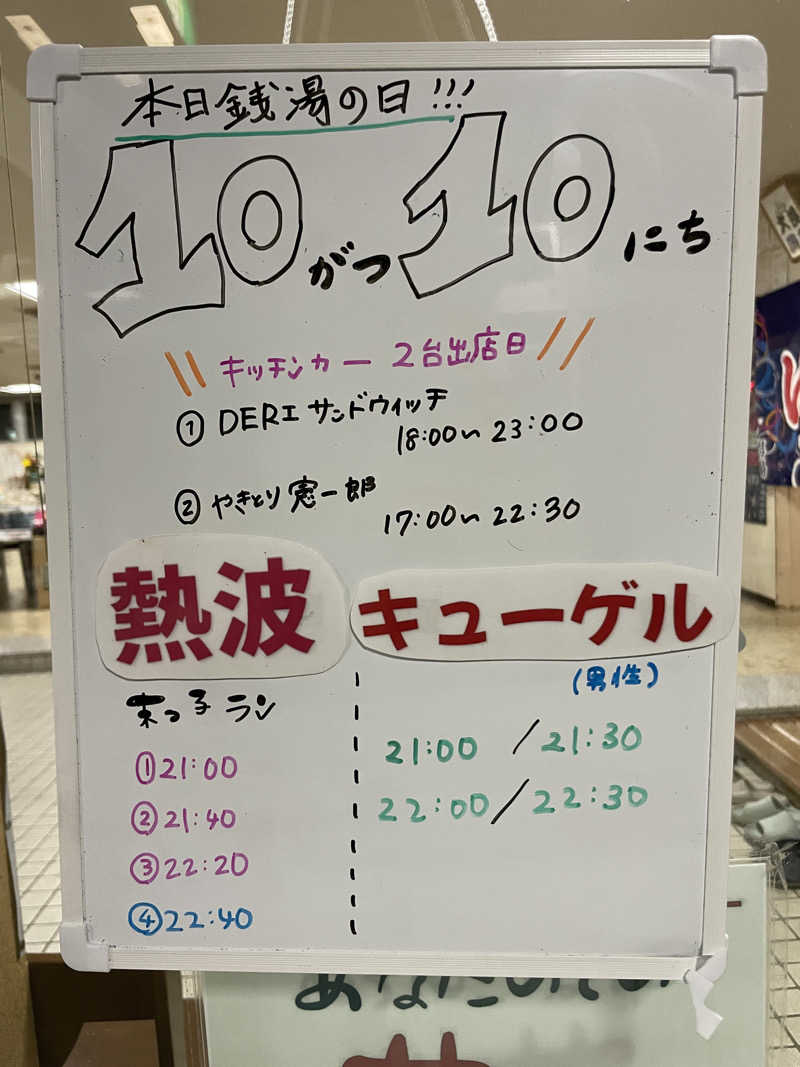 本日銭湯の日!!!
10がつ10にち
\\ キッチンカー 2台出店日 //
① DERI サンドウィッチ
18:00〜23:00
② やきとり 憲一郎
17:00〜22:30
熱波 キューゲル
(男性)
末っ子 ラン
①21:00
②21:40
③22:20
④22:40
21:00 / 21:30
22:00 / 22:30